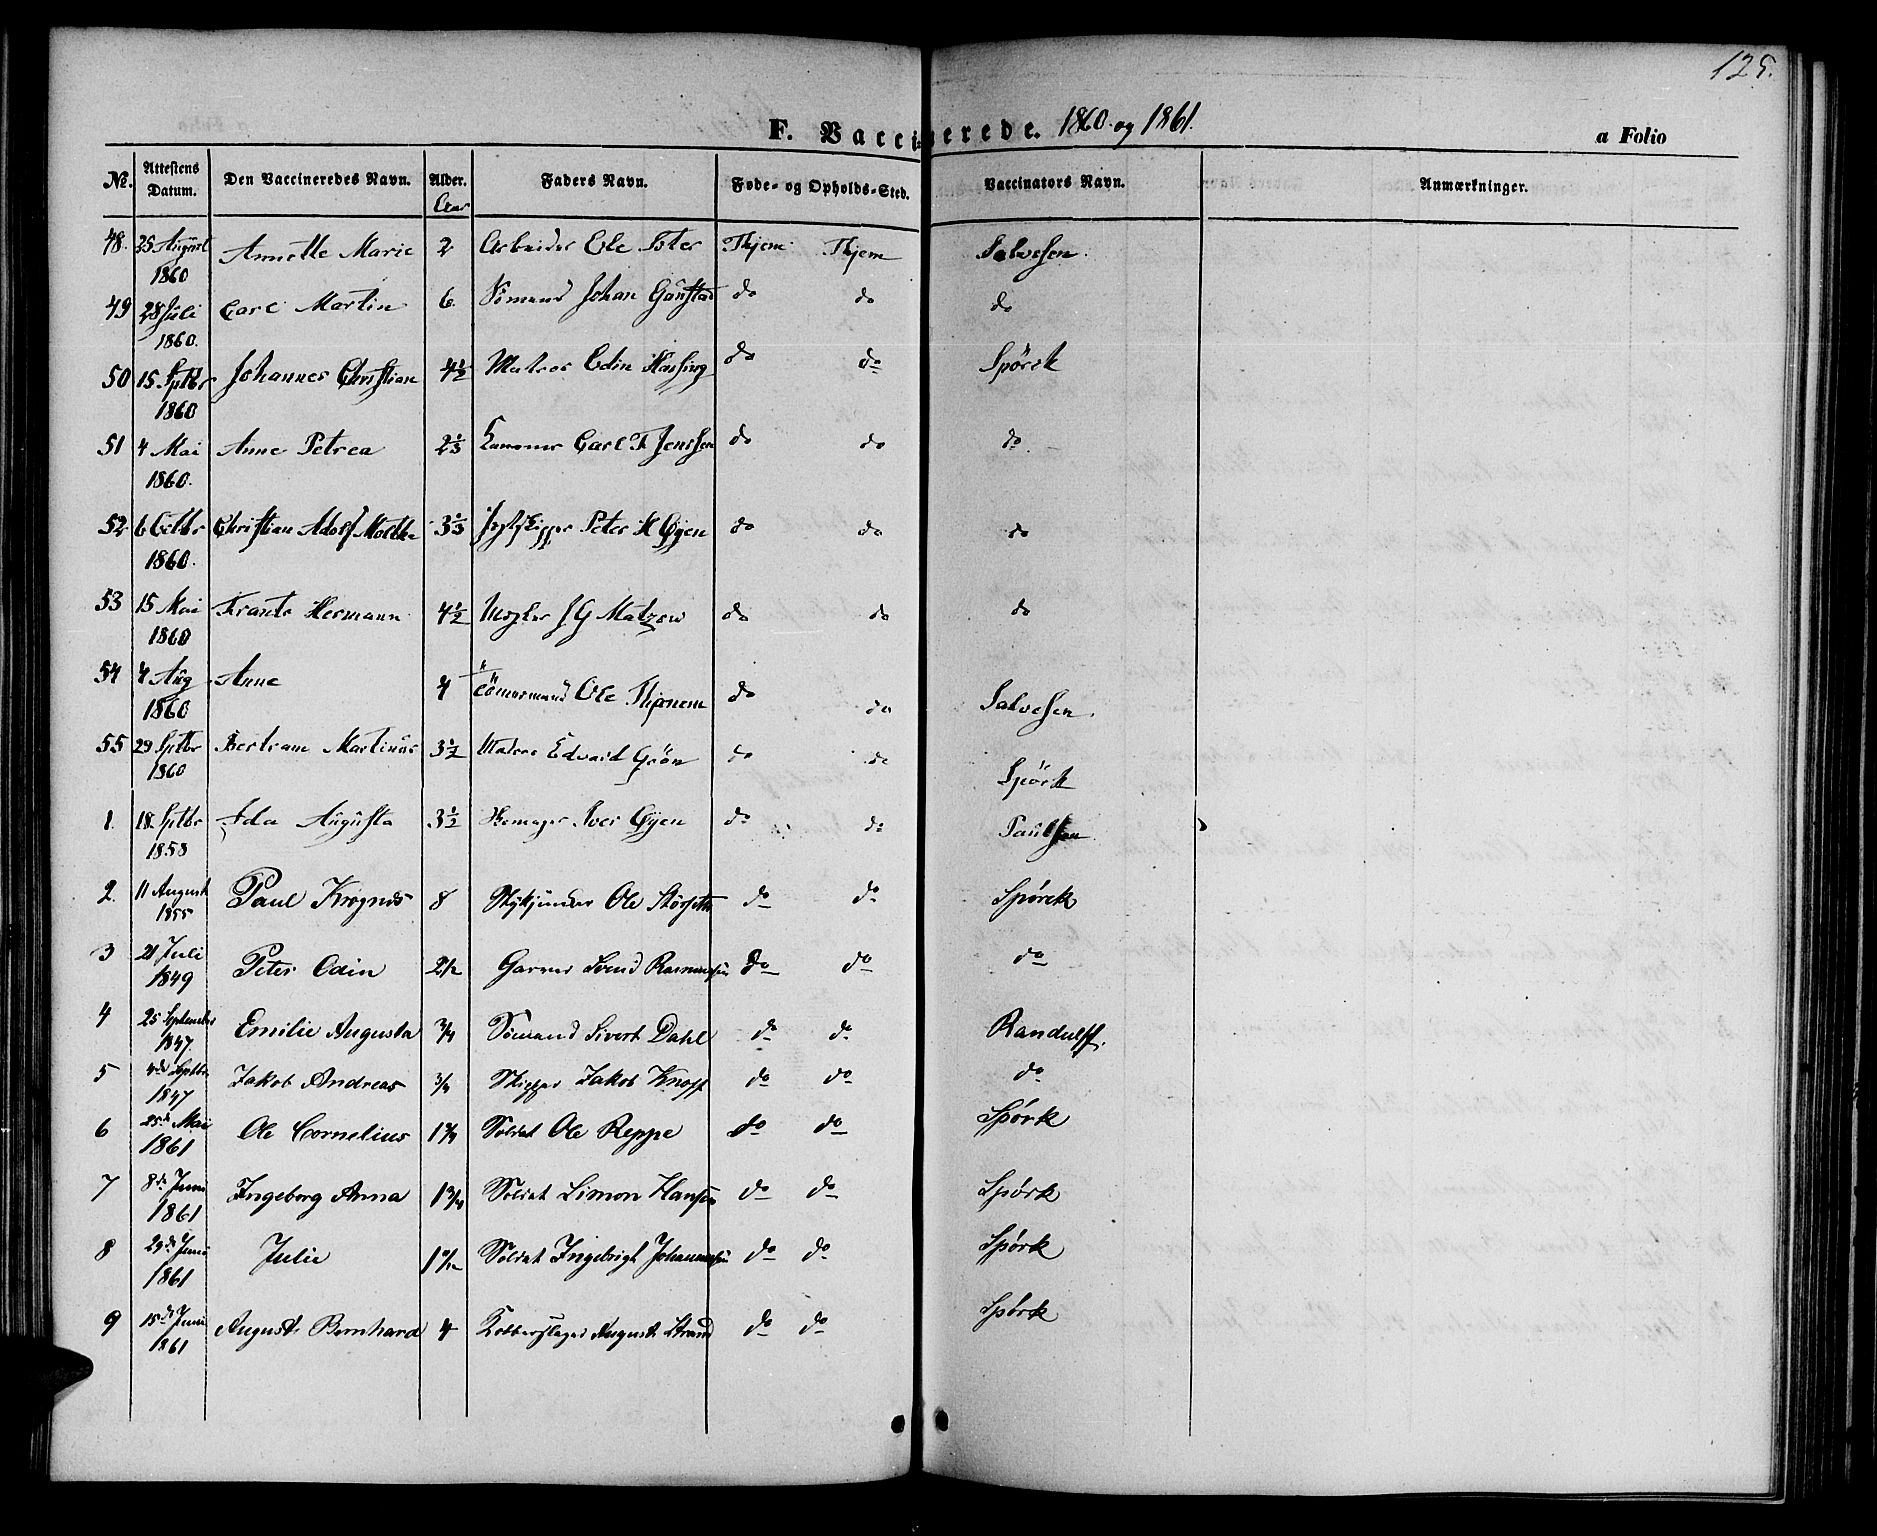 125.
F. Vaccinerede. 1860 og 1861.
a Folio
No. Attestens Datum. Den Vaccineredes Navn. Alder. Aar Faders Navn. Føde- og Opholds-Sted. Vaccinators Navn. Anmærkninger.
48. 25 August 1860 Annette Marie 2 Arbeider Ole Thjem Thjem Salvesen.
49 28 Juli 1860. Carl Martin 6. Sømand Johan Gaustad do do do
50 15 Sptbr 1860 Johannes Christian 4½ Matros Edin do do Spørck
51 4 Mai 1860. Anne Petrea 2⅓ Carl Jenssen do do do
52 6 Octbr 1860. Christian Adolf Moltke 3⅓ Jagtskipper Peter H Øyen do do do
53 15 Mai 1860 Frants Hermann 4½ J G Matzow do do do
54 4 Aug 1860 Anne 4 Tömmermand Ole do do Salvesen.
55 29 Sptbr 1860 Bertram Martinus 3½ Matros Edvard Grön do do Spörk
1. 18. Sptbr 1858 Ida Augusta 3½ Skomager Iver Øyen do do Paulsen
2. 11 August 1855 Paul Krognes 8 Ole Størseth do do Spørck
3 21 Juli 1849 Peter Odin 2½ Garver Svend Rasmussen do do do
4 25 September 1847. Emilie Augusta 3/4 Sömand Sivert Dahl do do Randulff.
5 4de Septbr 1847 Jakob Andreas 3/4 Skipper Jakob Knoff do do do
6 25de Mai 1861 Ole Cornelius 1¾ Soldat Ole Reppe do do Spørk
7 8de Juni 1861 Ingeborg Anna 1¾ Soldat Simon Hansen do do Spørk
8 29de Juni 1861 Julie Soldat Ingebrigt Johannessen do do Spørk
9 15de Juni 1861 August Bernhard 4 Kobberslager August Strand do do Spørck